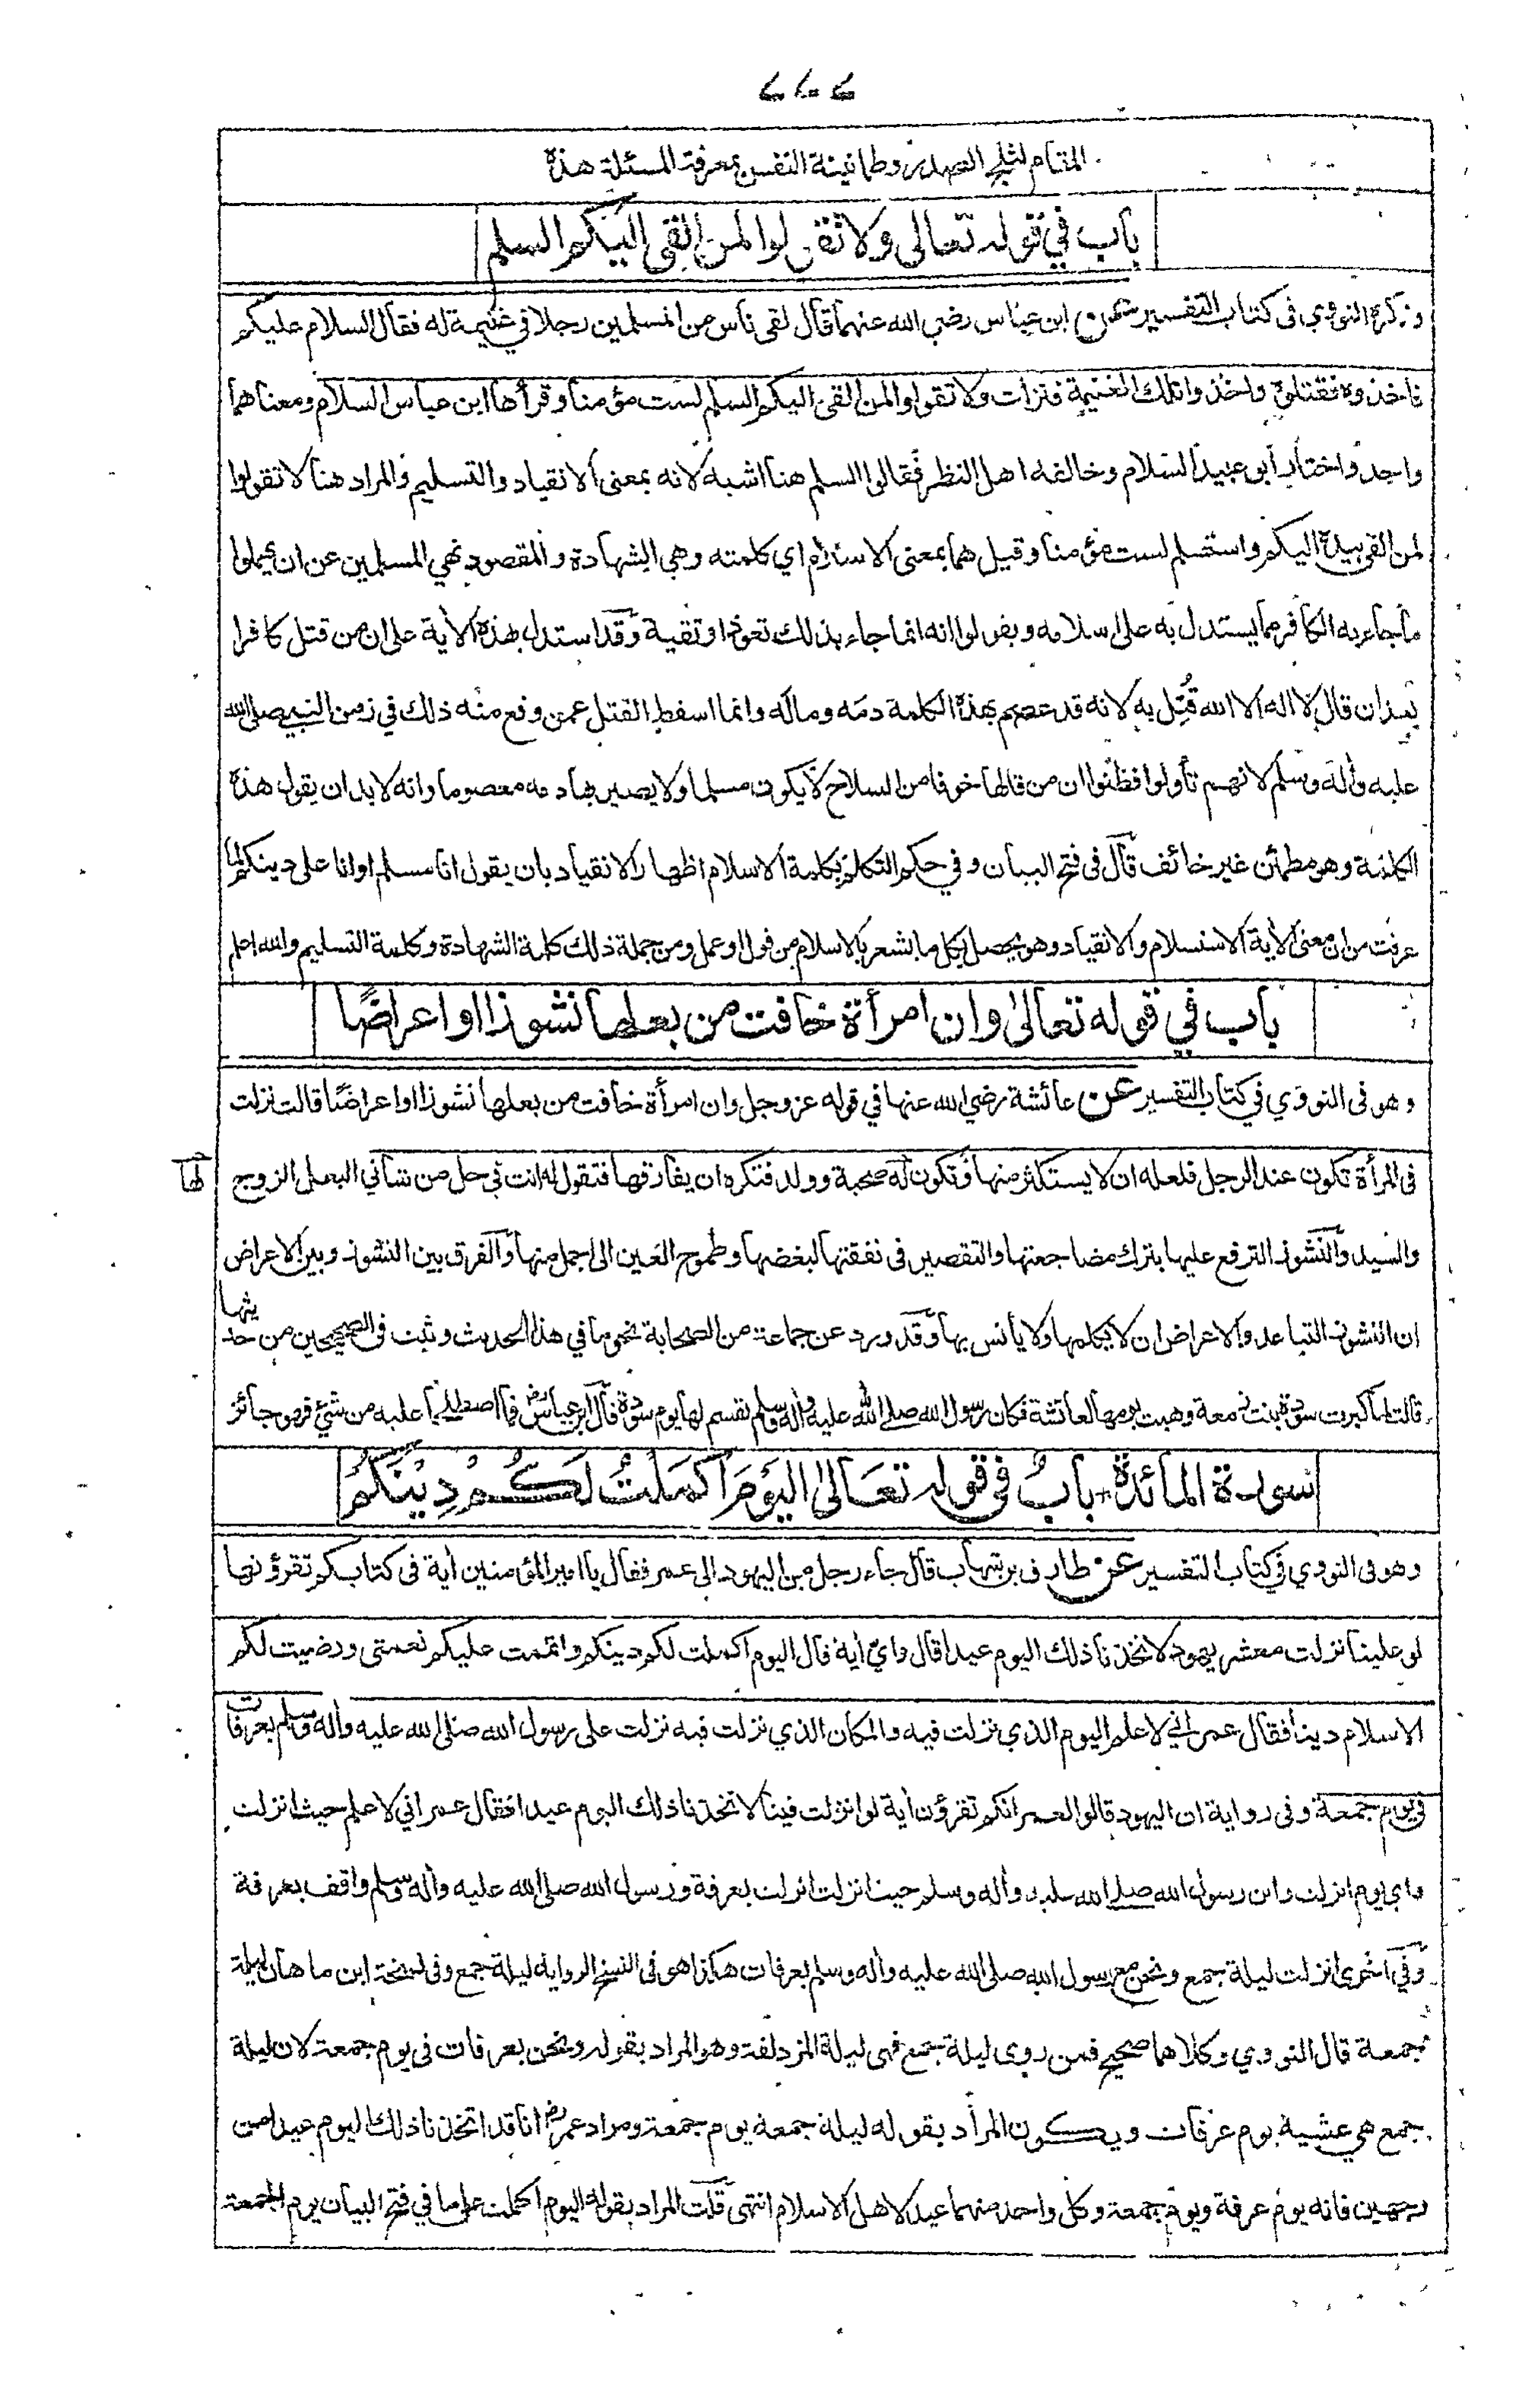 المقام لثلج الصدر وطمانينة النفس بمعرفة المسئلة هذه
باب في قوله تعالى ولا تقولوا لمن القى اليكم السلم
وذكره النووي في كتاب التفسير عن ابن عباس رضي الله عنهما قال لقى ناس من المسلمين رجلا في غنيمة له فقال السلام عليكم
فاخذوه فقتلوه واخذوا تلك الغنيمة فنزلت ولا تقولوا لمن القى اليكم السلم لست مؤمنا وقرأها ابن عباس السلام ومعناهما
واحد واختار أبو عبيد السلام وخالفه اهل النظر فقالوا السلم هنا اشبه لانه بمعنى الانقياد والتسليم والمراد هنا لا تقولوا
لمن القى بيده اليكم واستسلم لست مؤمنا وقيل هما بمعنى الاسلام اي كلمته وهي الشهادة والمقصود نهي المسلمين عن ان يهملوا
ما جاء به الكافر مما يستدل به على اسلامه ويقولوا انه انما جاء بذلك تعوذا وتقية وقد استدل بهذه الأية على ان من قتل كافرا
بعد ان قال لا اله الا الله قُتِل به لانه قد عصم بهذه الكلمة دمه وماله وانما اسقط القتل عمن وقع منه ذلك في زمن النبي صلى الله
عليه وأله وسلم لانهم تأولوا فظنوا ان من قالها خوفا من السلاح لا يكون مسلما ولا يصير بها دمه معصوما وانه لا بد ان يقول هذه
الكلمة وهو مطمئن غير خائف قال في فتح البيان وفي حكم التكلم بكلمة الاسلام اظهار الانقياد بان يقول انا مسلم او انا على دينكم لما
عرفت من ان معنى الأية الاستسلام والانقياد وهو يحصل بكل ما يشعر بالاسلام من قول او عمل ومن جملة ذلك كلمة الشهادة وكلمة التسليم والله اعلم
باب في قوله تعالىٰ وان امرأة خافت من بعلها نشوزا او اعراضًا
وهو في النووي في كتاب التفسير عن عائشة رضي الله عنها في قوله عز وجل وان امرأة خافت من بعلها نشوزا او اعراضًا قالت نزلت
في المرأة تكون عند الرجل فلعله ان لا يستكثر منها وتكون له صحبة وولد فتكره ان يفارقها فتقول له انت في حل من شأني البعل الزوج
لها
والسيد والنشوز الترفع عليها بترك مضاجعتها والتقصير في نفقتها لبغضها وطموح العين الى اجمل منها والفرق بين النشوز وبين الاعراض
ان النشوز التباعد والاعراض ان لا يكلمها ولا يأنس بها وقد ورد عن جماعة من الصحابة نحو ما في هذا الحديث وثبت في الصحيحين من حديثها
قالت لما كبرت سودة بنت زمعة وهبت يومها لعائشة فكان رسول الله صلى الله عليه وأله وسلم يقسم لها يوم سودة قال ابن عباس رض فما اصطلحا عليه من شئ فهو جائز
سورة المائدة باب في قوله تعالىٰ اليوم اكملت لكم دينكم
وهو في النووي في كتاب التفسير عن طارق بن شهاب قال جاء رجل من اليهود الى عمر فقال يا امير المؤمنين أية في كتابكم تقرؤنها
لو علينا نزلت معشر يهود لاتخذنا ذلك اليوم عيدا قال واي أية قال اليوم اكملت لكم دينكم واتممت عليكم نعمتي ورضيت لكم
الاسلام دينا فقال عمر اني لاعلم اليوم الذي نزلت فيه والمكان الذي نزلت فيه نزلت على رسول الله صلى الله عليه وأله وسلم بعرفات
في يوم جمعة وفي رواية ان اليهود قالوا لعمر انكم تقرؤن أية لو انزلت فينا لاتخذنا ذلك اليوم عيدا فقال عمر اني لاعلم حيث انزلت
واي يوم انزلت واين رسول الله صلى الله عليه وأله وسلم حيث انزلت انزلت بعرفة ورسول الله صلى الله عليه وأله وسلم واقف بعرفة
وفي اخرى انزلت ليلة جمع ونحن مع رسول الله صلى الله عليه وأله وسلم بعرفات هكذا هو في النسخ الرواية ليلة جمع وفي نسخة ابن ماهان ليلة
جمعة قال النووي وكلاهما صحيح فمن روى ليلة جمع فهي ليلة المزدلفة وهو المراد بقوله ونحن بعرفات في يوم جمعة لان ليلة
جمع هي عشية يوم عرفات ويكون المراد بقوله ليلة جمعة يوم جمعة ومراد عمر رض انا قد اتخذنا ذلك اليوم عيدا من
وجهين فانه يوم عرفة ويوم جمعة وكل واحد منهما عيد لاهل الاسلام انتهى قلت المراد بقوله اليوم اكملت على ما في فتح البيان يوم الجمعة